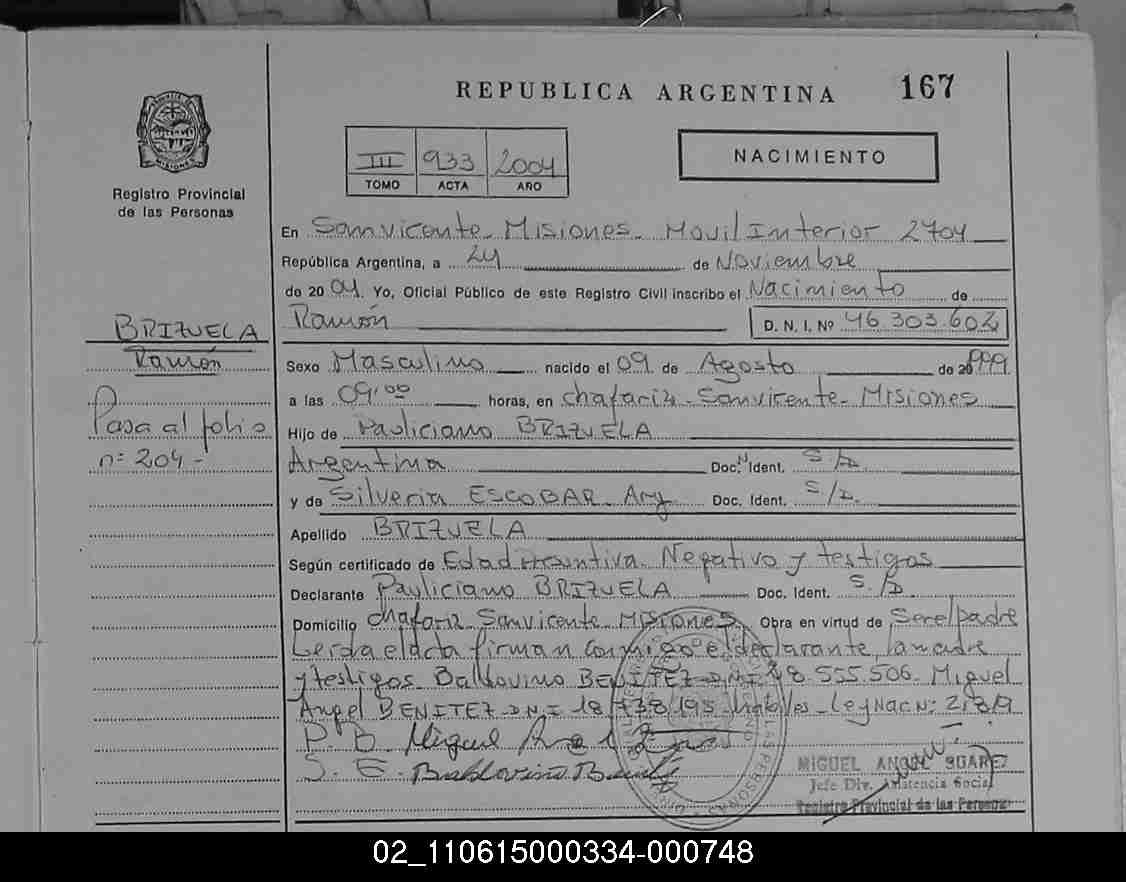 REPUBLICA ARGENTINA 167
PROVINCIA DE MISIONES
Registro Provincial
de las Personas
III 933 2004
TOMO ACTA AÑO
NACIMIENTO
En San vicente - Misiones - Movil Interior 2704
República Argentina, a 24 de Noviembre
de 2004. Yo, Oficial Público de este Registro Civil inscribo el Nacimiento de
Ramón D. N. I. Nº 46.303.602
BRIZUELA
Ramón
Pasa al folio
nº 204 -
Sexo Masculino nacido el 09 de Agosto de 1999
a las 09,00 horas, en chafariz - San vicente - Misiones
Hijo de Pauliciano BRIZUELA
Argentina Doc. Ident. S/D.
y de Silveria ESCOBAR - Arg Doc. Ident. S/D.
Apellido BRIZUELA
Según certificado de Edad Presuntiva Negativo y testigos
Declarante Pauliciano BRIZUELA Doc. Ident. S/D.
Domicilio chafariz San vicente MISIONES Obra en virtud de Ser el padre
Leida el acta firman conmigo el declarante, la madre
y testigos Baldovino BENITEZ - DNI 8.555.506. Miguel
Angel BENITEZ - DNI 18.738.195 - Ley Nac N:
P. B. Miguel
S. E. Baldovino
MIGUEL ANGEL SUAREZ
Jefe Div. Asistencia Social
Registro Provincial de las Personas
02_110615000334-000748